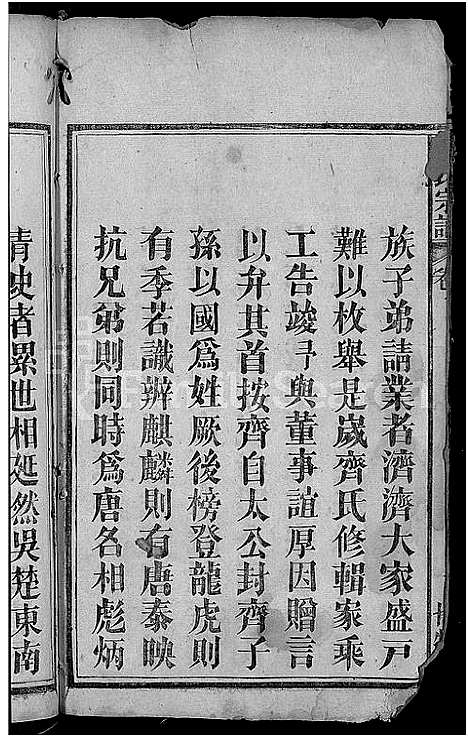 宗譜 卷
族子弟請業者濟濟大家盛戸
難以枚舉是歲齊氏修輯家乘
工告竣予與董事誼厚因贈言
以弁其首按齊自太公封齊子
孫以國爲姓厥後榜登龍虎則
有季若識辨麒麟則有唐泰映
抗兄弟則同時爲唐名相彪炳
青史者累世相延然吳楚東南